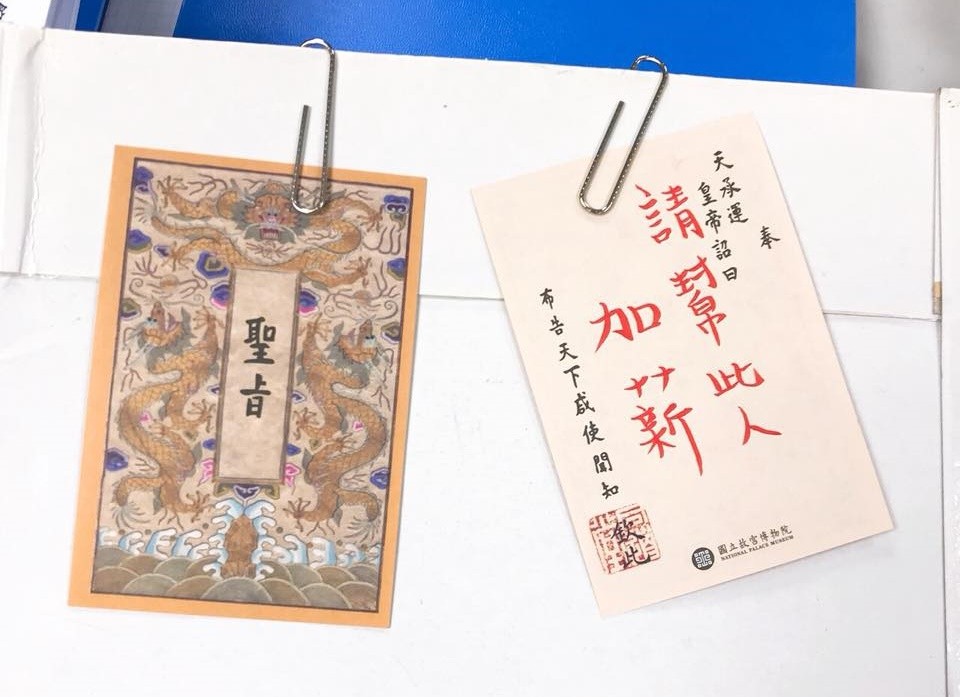 聖旨
奉
天承運
皇帝詔曰
請幫此人
加薪
布告天下咸使聞知
欽此
國立故宮博物院
NATIONAL PALACE MUSEUM